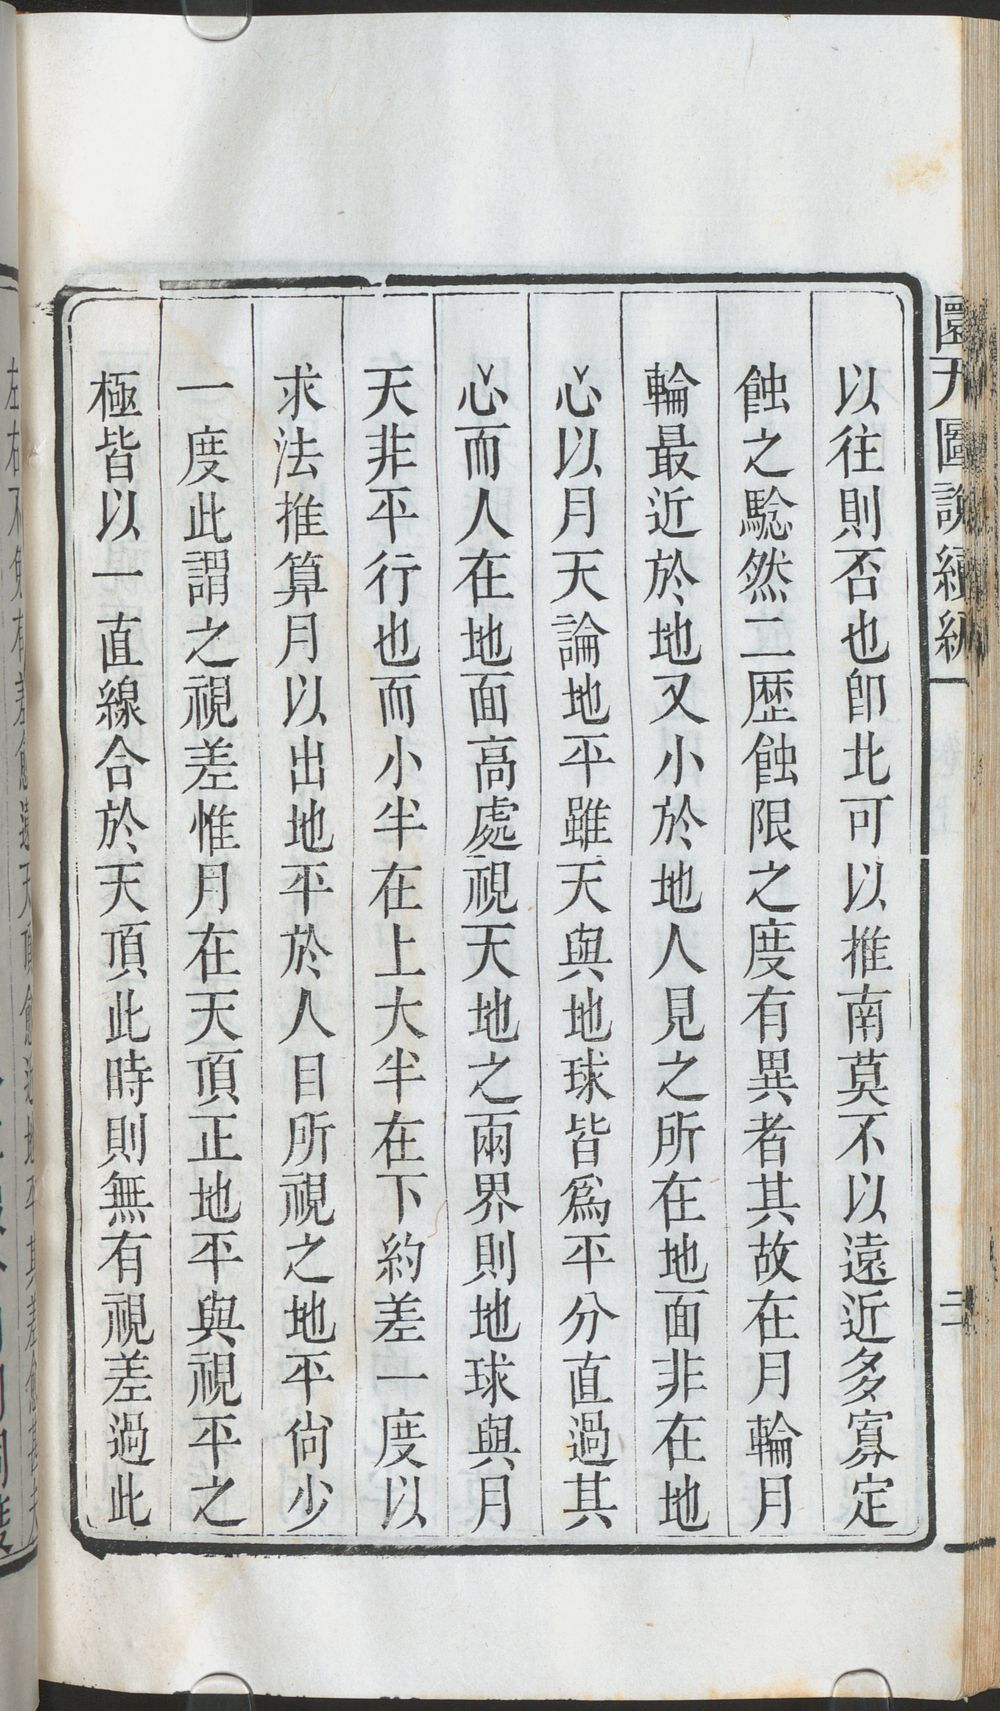 以往則否也即北可以推南莫不以遠近多寡定
蝕之騐然二歴蝕限之度有異者其故在月輪月
輪最近於地又小於地人見之所在地面非在地
心以月天論地平雖天與地球皆爲平分直過其
心而人在地面高處視天地之兩界則地球與月
天非平行也而小半在上大半在下約差一度以
求法推算月以出地平於人目所視之地平尙少
一度此謂之視差惟月在天頂正地平與視平之
極皆以一直線合於天頂此時則無有視差過此
圜天圖說續編